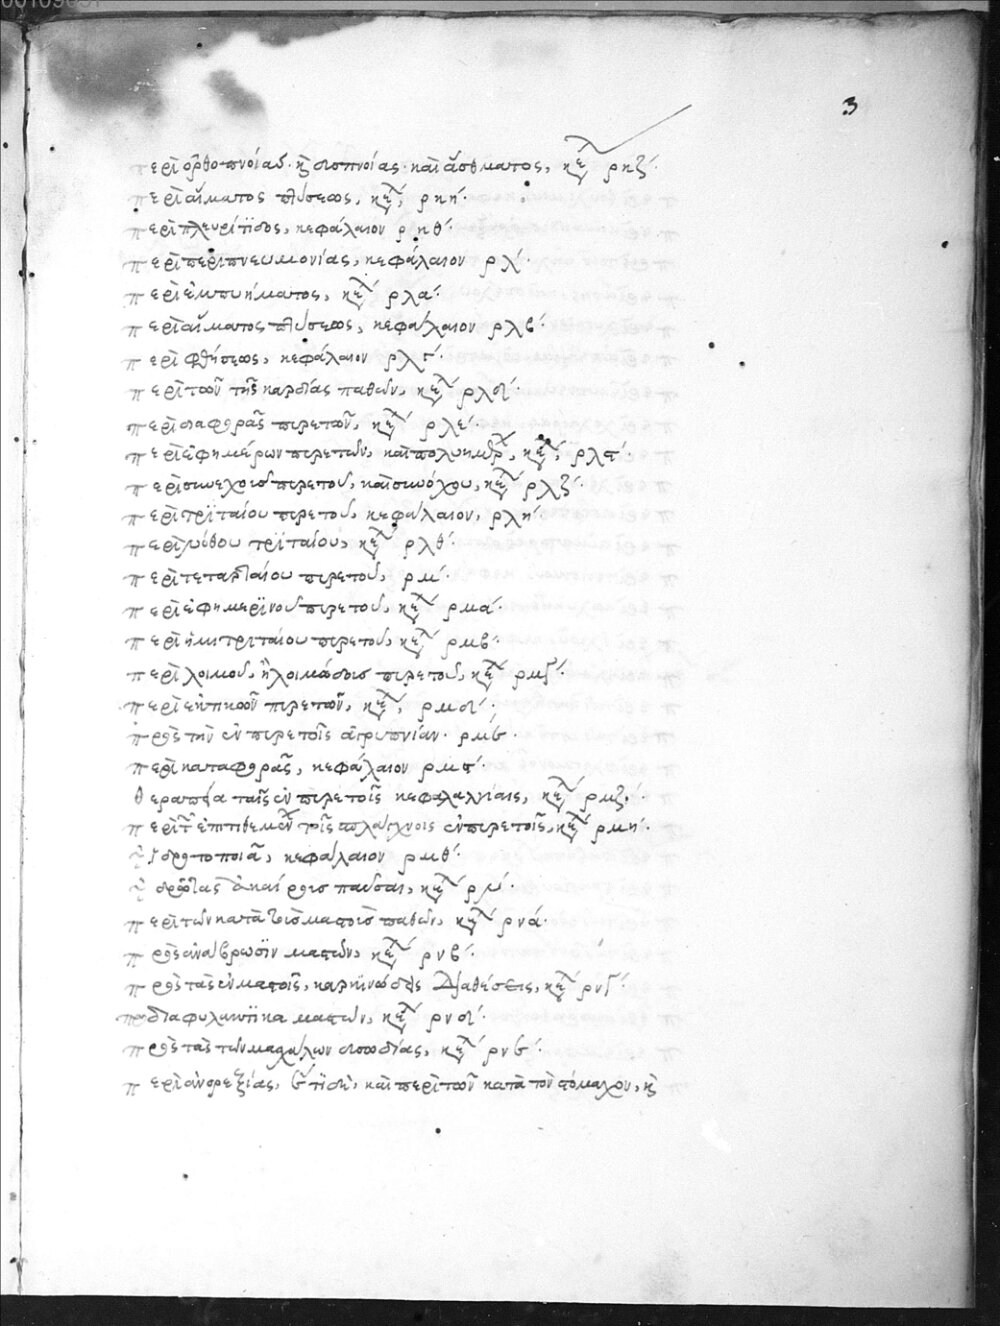 3
περὶ ὀρθοπνοίας κὶ δισπνοίας καὶ ἄσθματος, κεφ ρκζ´
περὶ αἵματος πτύσεως, κεφ ρκη´
περὶ πλευρίτιδος, κεφάλαιον ρκθ´
περὶ περιπνευμονίας, κεφάλαιον ρλ´
περὶ ἐμπυήματος, κεφ ρλα´
περὶ αἵματος πτύσεως, κεφάλαιον ρλβ´
περὶ φθήσεως, κεφάλαιον ρλγ´
περὶ τῶν τῆς καρδίας παθῶν, κεφ ρλδ´
περὶ διαφορᾶς πυρετῶν, κεφ ρλε´
περὶ ἐφημέρων πυρετῶν, καὶ πολυημέρ, κεφ ρλϛ´
περὶ συνεχοῦς πυρετοῦ, καὶ συνόχου, κεφ ρλζ´
περὶ τριταίου πυρετοῦ, κεφάλαιον, ρλη´
περὶ νόθου τριταίου, κεφ ρλθ´
περὶ τεταρταίου πυρετοῦ, ρμ´
περὶ ἐφημερινοῦ πυρετοῦ, κεφ ρμα´
περὶ ἡμιτριταίου πυρετοῦ, κεφ ρμβ´
περὶ λοιμοῦ, ἢ λοιμώδους πυρετοῦ, κεφ ρμγ´
περὶ ἑκτικῶν πυρετῶν, κεφ ρμδ´
πρὸς τὴν ἐν πυρετοῖς ἀγρυπνίαν ρμε´
περὶ καταφορᾶς, κεφάλαιον ρμϛ´
θεραπεία ταῖς ἐν πυρετοῖς κεφαλαλγίαις, κεφ ρμζ´
περὶ τ ἐπιτιθεμέν τοῖς σπλάγχνοις ἐν πυρετοῖς, κεφ ρμη´
ὑδροποποιΐα, κεφάλαιον ρμθ´
κεφ ρν´
περὶ τῶν κατὰ τοὺς μαστοὺς παθῶν, κεφ ρνα´
πρὸς ἀνάβρωσιν μαστῶν, κεφ ρνβ´
πρὸς τὰς ἐν μαστοῖς, καρκινώδεις διαθέσεις, κεφ ρνγ´
διαφυλακτικὰ μαστῶν, κεφ ρνδ´
πρὸς τὰς τῶν μασχάλων δυσωδίας, κεφ ρνε´
περὶ ἀνορεξίας, καὶ περὶ τῶν κατὰ τὸν στόμαχον, κὶ